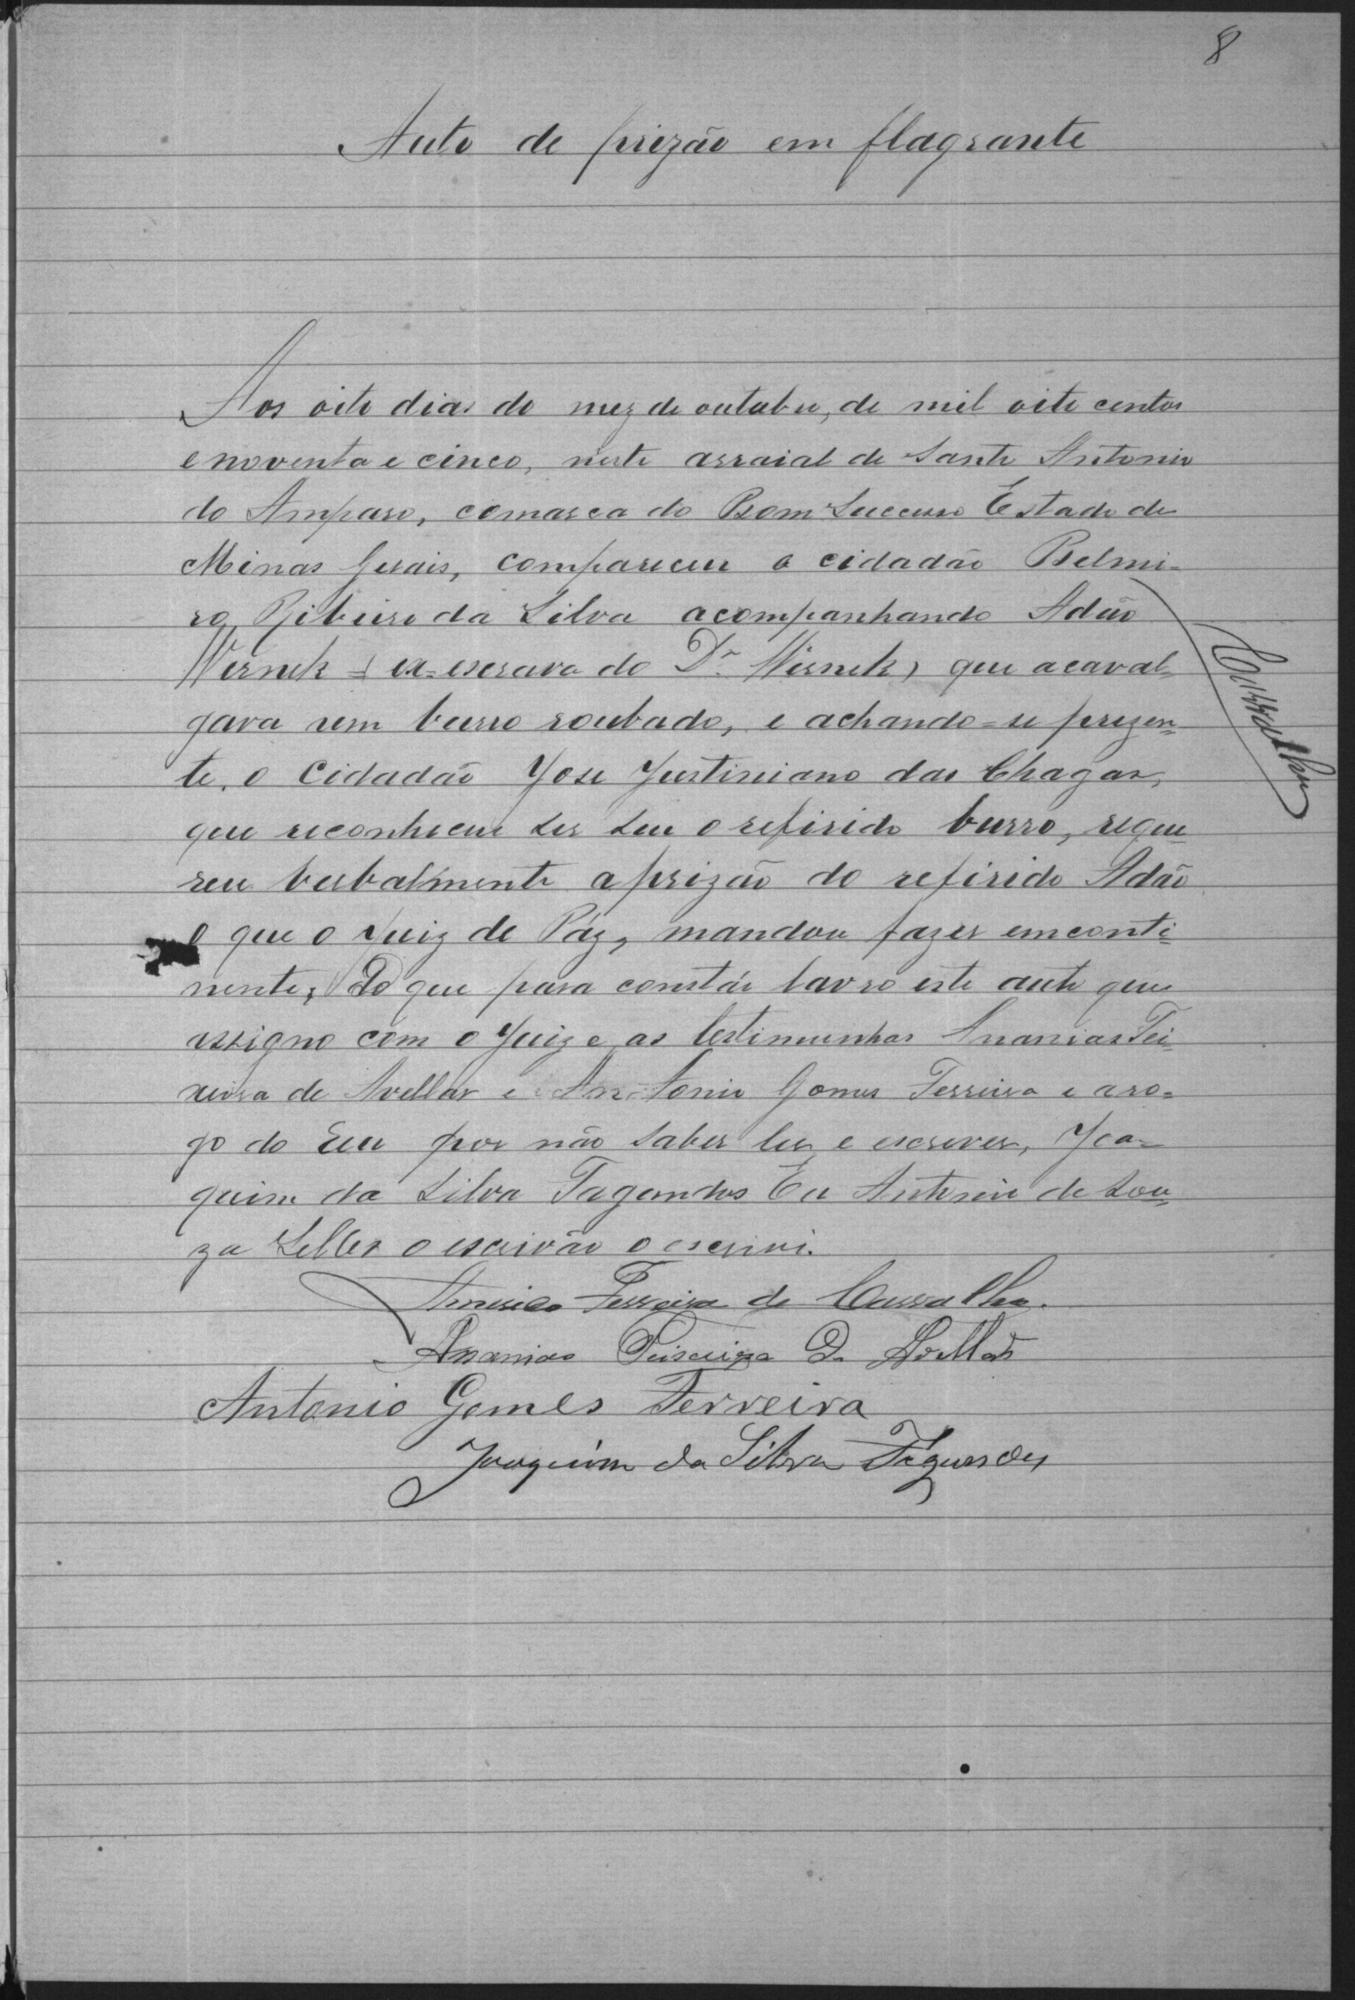 8
Auto de prizão em flagrante
Aos oito dias do mez de outubro, de mil oito centos
e noventa e cinco, neste arraial de Santo Antonio
do Amparo, comarca do Bom Successo Estado de
Minas Gerais, compareceu o cidadão Belmi-
ro Ribeiro da Silva acompanhando Adão
Wernek (ex-escravo do Dr. Wernek) que acaval-
gava um burro roubado, e achando-se prezen-
te, o Cidadão Jose Justiniano das Chagas,
que reconheceu ser seu o referido burro, reque-
reu verbalmente a prizão do referido Adão
o que o Juiz de Páz, mandou fazer emconti-
nente; Do que para constár lavro este auto que
assigno com o Juiz e as testimunhas Ananias Tei-
xeira de Avellar e Antonio Gomes Ferreira e a ro-
go do Reu por não saber ler e escrever, Joa-
quim da Silva Fagundes Eu Antonio de Sou-
za o escrivão o escrivi.
Americo Ferreira de Carvalho.
Ananias Teixeira de Avellar
Antonio Gomes Ferreira
Joaquim da Silva Fagundes
Carvalho